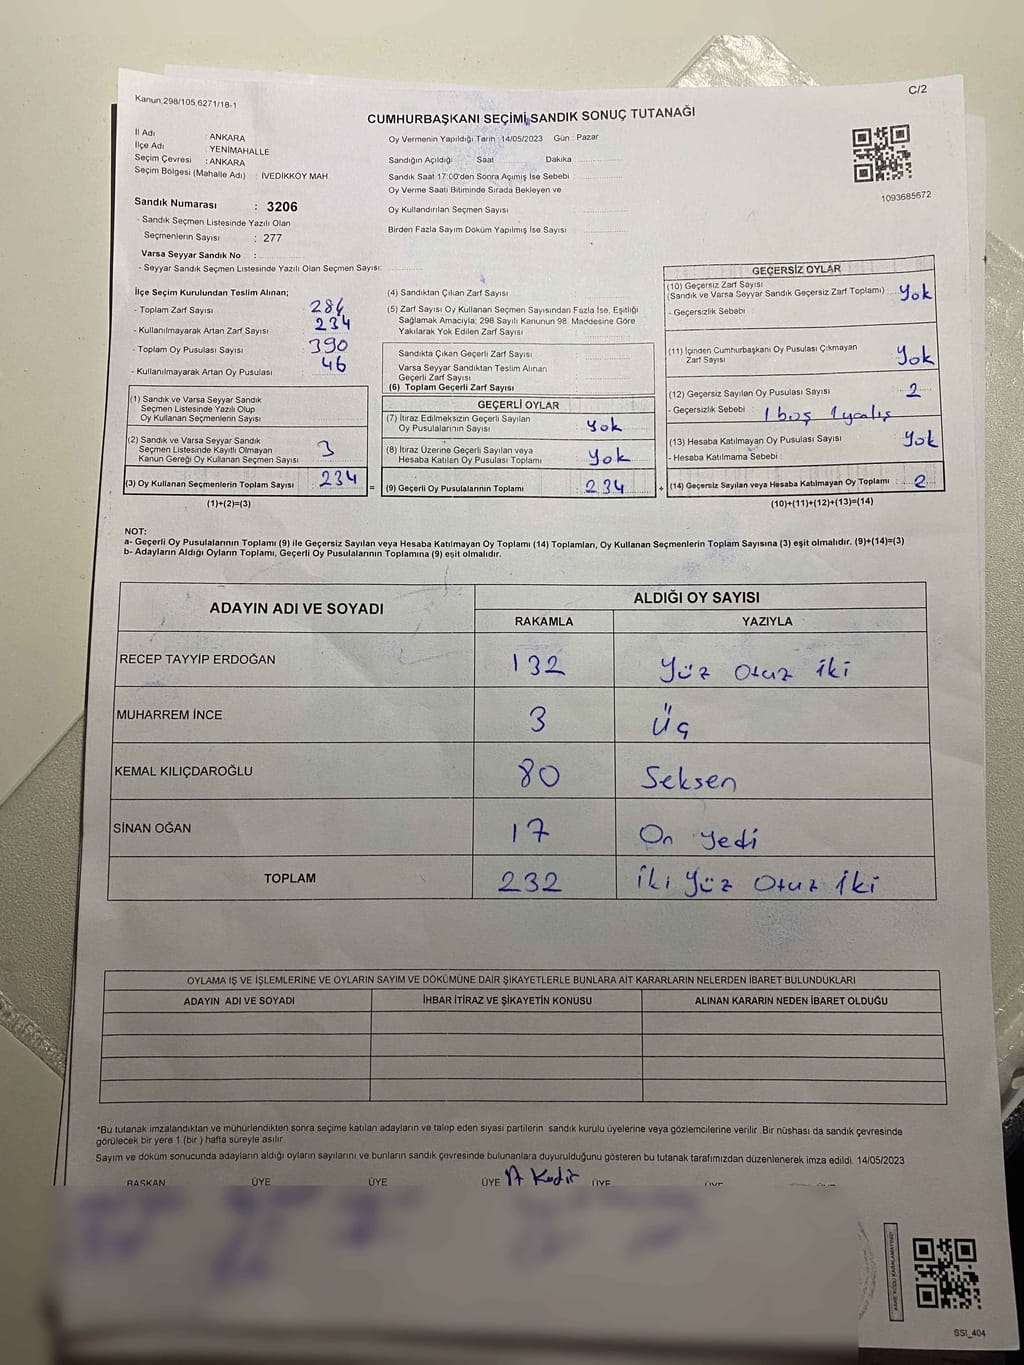 Kanun:298/105;6271/18-1
C/2
CUMHURBAŞKANI SEÇİMİ SANDIK SONUÇ TUTANAĞI
İl Adı : ANKARA
İlçe Adı : YENİMAHALLE
Seçim Çevresi : ANKARA
Seçim Bölgesi (Mahalle Adı) : İVEDİKKÖY MAH
Sandık Numarası : 3206
- Sandık Seçmen Listesinde Yazılı Olan
Seçmenlerin Sayısı : 277
Varsa Seyyar Sandık No :
- Seyyar Sandık Seçmen Listesinde Yazılı Olan Seçmen Sayısı:
Oy Vermenin Yapıldığı Tarih :14/05/2023 Gün : Pazar
Sandığın Açıldığı Saat Dakika
Sandık Saat 17:00'den Sonra Açımış İse Sebebi :
Oy Verme Saati Bitiminde Sırada Bekleyen ve
Oy Kullandırılan Seçmen Sayısı
Birden Fazla Sayım Döküm Yapılmış İse Sayısı
1093685672
İlçe Seçim Kurulundan Teslim Alınan;
- Toplam Zarf Sayısı 284
- Kullanılmayarak Artan Zarf Sayısı 234
- Toplam Oy Pusulası Sayısı 390
- Kullanılmayarak Artan Oy Pusulası 46
(1) Sandık ve Varsa Seyyar Sandık
Seçmen Listesinde Yazılı Olup
Oy Kullanan Seçmenlerin Sayısı
(2) Sandık ve Varsa Seyyar Sandık
Seçmen Listesinde Kayıtlı Olmayan
Kanun Gereği Oy Kullanan Seçmen Sayısı 3
(3) Oy Kullanan Seçmenlerin Toplam Sayısı 234 =
(1)+(2)=(3)
(4) Sandıktan Çıkan Zarf Sayısı
(5) Zarf Sayısı Oy Kullanan Seçmen Sayısından Fazla İse, Eşitliği
Sağlamak Amacıyla; 298 Sayılı Kanunun 98. Maddesine Göre
Yakılarak Yok Edilen Zarf Sayısı
Sandıkta Çıkan Geçerli Zarf Sayısı
Varsa Seyyar Sandıktan Teslim Alınan
Geçerli Zarf Sayısı
(6) Toplam Geçerli Zarf Sayısı
GEÇERLİ OYLAR
(7) İtiraz Edilmeksizin Geçerli Sayılan
Oy Pusulalarının Sayısı yok
(8) İtiraz Üzerine Geçerli Sayılan veya
Hesaba Katılan Oy Pusulası Toplamı yok
(9) Geçerli Oy Pusulalarının Toplamı 234 +
GEÇERSİZ OYLAR
(10) Geçersiz Zarf Sayısı
(Sandık ve Varsa Seyyar Sandık Geçersiz Zarf Toplamı) yok
- Geçersizlik Sebebi :
(11) İçinden Cumhurbaşkanı Oy Pusulası Çıkmayan
Zarf Sayısı yok
(12) Geçersiz Sayılan Oy Pusulası Sayısı 2
- Geçersizlik Sebebi : 1 boş 1 yanlış
(13) Hesaba Katılmayan Oy Pusulası Sayısı yok
- Hesaba Katılmama Sebebi :
(14) Geçersiz Sayılan veya Hesaba Katılmayan Oy Toplamı 2
(10)+(11)+(12)+(13)=(14)
NOT:
a- Geçerli Oy Pusulalarının Toplamı (9) ile Geçersiz Sayılan veya Hesaba Katılmayan Oy Toplamı (14) Toplamları, Oy Kullanan Seçmenlerin Toplam Sayısına (3) eşit olmalıdır. (9)+(14)=(3)
b- Adayların Aldığı Oyların Toplamı, Geçerli Oy Pusulalarının Toplamına (9) eşit olmalıdır.
ADAYIN ADI VE SOYADI
ALDIĞI OY SAYISI
RAKAMLA YAZIYLA
RECEP TAYYİP ERDOĞAN 132 yüz otuz iki
MUHARREM İNCE 3 Üç
KEMAL KILIÇDAROĞLU 80 Seksen
SİNAN OĞAN 17 On yedi
TOPLAM 232 İki yüz otuz iki
OYLAMA İŞ VE İŞLEMLERİNE VE OYLARIN SAYIM VE DÖKÜMÜNE DAİR ŞİKAYETLERLE BUNLARA AİT KARARLARIN NELERDEN İBARET BULUNDUKLARI
ADAYIN ADI VE SOYADI İHBAR İTİRAZ VE ŞİKAYETİN KONUSU ALINAN KARARIN NEDEN İBARET OLDUĞU
*Bu tutanak imzalandıktan ve mühürlendikten sonra seçime katılan adayların ve talep eden siyasi partilerin sandık kurulu üyelerine veya gözlemcilerine verilir. Bir nüshası da sandık çevresinde
görülecek bir yere 1 (bir) hafta süreyle asılır.
Sayım ve döküm sonucunda adayların aldığı oyların sayılarını ve bunların sandık çevresinde bulunanlara duyurulduğunu gösteren bu tutanak tarafımızdan düzenlenerek imza edildi. 14/05/2023
BAŞKAN ÜYE ÜYE ÜYE ÜYE ÜYE
SSI_404